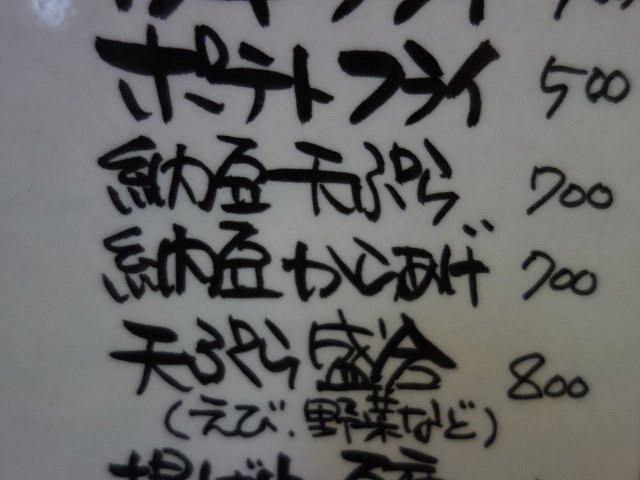 ポテトフライ 500
納豆天ぷら 700
納豆からあげ 700
天ぷら盛合 800
(えび、野菜など)